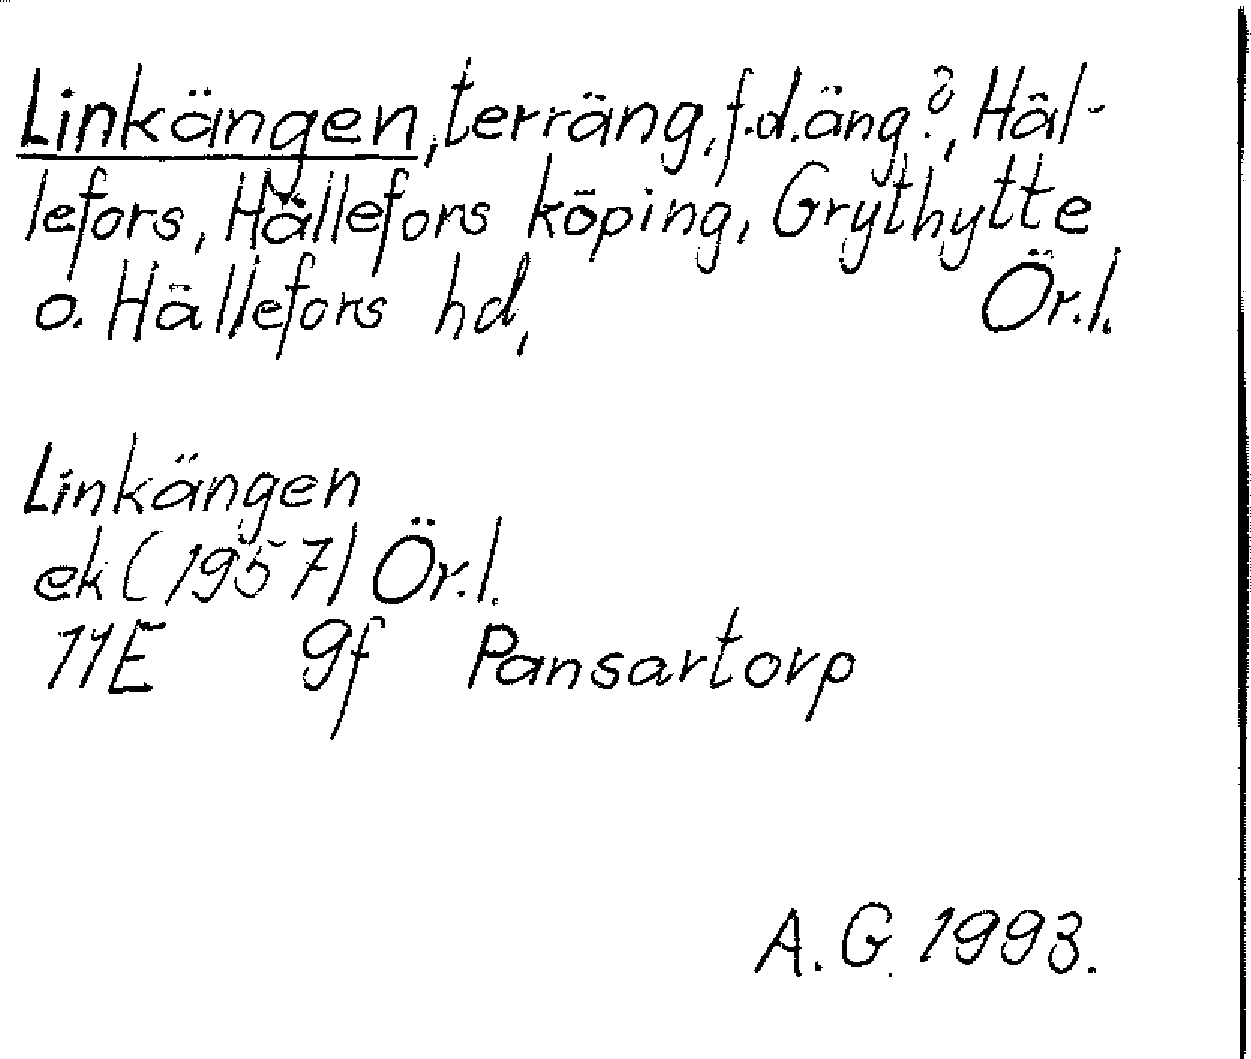 Linkängen, terräng, f.d. äng?, Häl-
lefors, Hällefors köping, Grythytte
o. Hällefors hd, Ör.l.
Linkängen
ek (1957) Ör.l.
11E 9f Pansartorp
A.G. 1993.